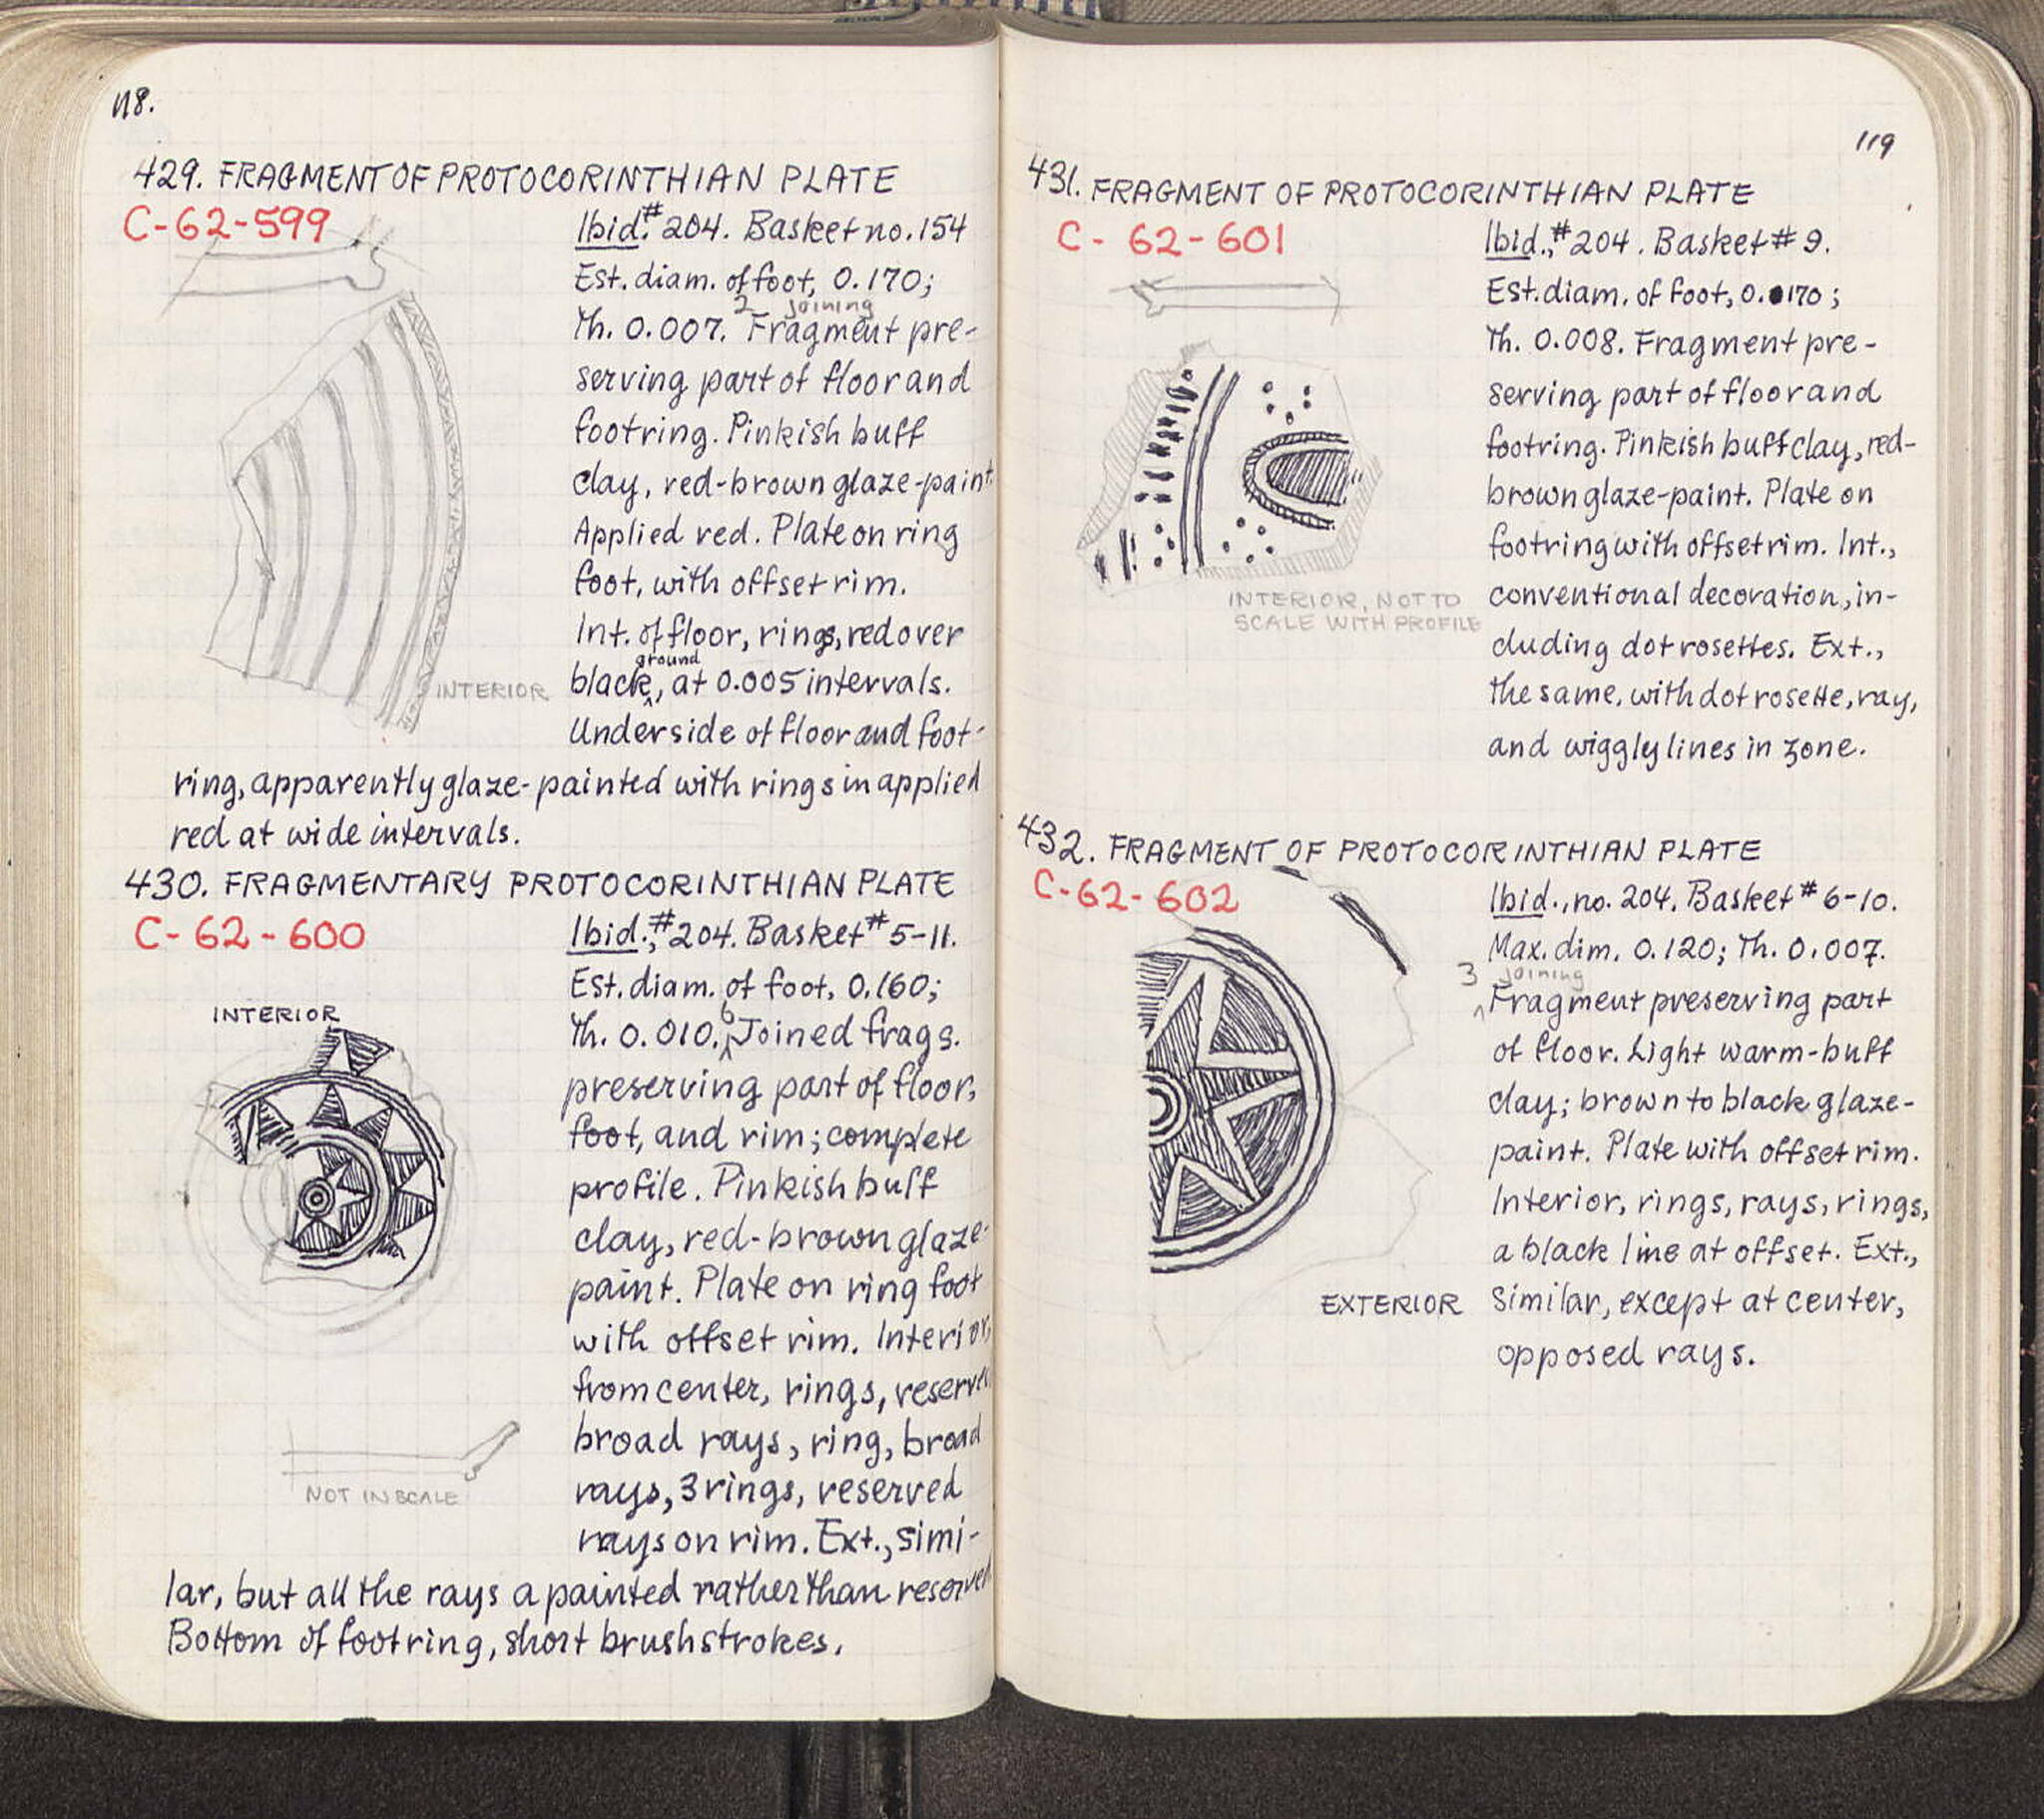 118.
429. FRAGMENT OF PROTOCORINTHIAN PLATE
C-62-599
Ibid.# 204. Basket no. 154
Est. diam. of foot, 0.170;
2 joining
Th. 0.007. Fragment pre-
serving part of floor and
footring. Pinkish buff
clay, red-brown glaze-paint.
Applied red. Plate on ring
foot, with offset rim.
Int. of floor, rings, red over
ground
black, at 0.005 intervals.
INTERIOR
Underside of floor and foot-
ring, apparently glaze-painted with rings in applied
red at wide intervals.
430. FRAGMENTARY PROTOCORINTHIAN PLATE
C-62-600
Ibid., #204. Basket #5-11.
Est. diam. of foot, 0.160;
6
Th. 0.010. Joined frags.
INTERIOR
preserving part of floor,
foot, and rim; complete
profile. Pinkish buff
clay, red-brown glaze-
paint. Plate on ring foot
with offset rim. Interior,
from center, rings, reserve
broad rays, ring, broad
rays, 3 rings, reserved
NOT IN SCALE
rays on rim. Ext., simi-
lar, but all the rays a painted rather than reserved
Bottom of footring, short brushstrokes.
119
431. FRAGMENT OF PROTOCORINTHIAN PLATE
C-62-601
Ibid., #204. Basket # 9.
Est. diam. of foot, 0.0170;
Th. 0.008. Fragment pre-
serving part of floor and
footring. Pinkish buff clay, red-
brown glaze-paint. Plate on
footring with offset rim. Int.,
conventional decoration, in-
INTERIOR, NOT TO
SCALE WITH PROFILE
cluding dot rosettes. Ext.,
the same, with dot rosette, ray,
and wiggly lines in zone.
432. FRAGMENT OF PROTOCORINTHIAN PLATE
C-62-602
Ibid., no. 204. Basket # 6-10.
Max. dim. 0.120; Th. 0.007.
3 joining
Fragment preserving part
of floor. Light warm-buff
clay; brown to black glaze-
paint. Plate with offset rim.
Interior, rings, rays, rings,
a black line at offset. Ext.,
EXTERIOR
similar, except at center,
opposed rays.